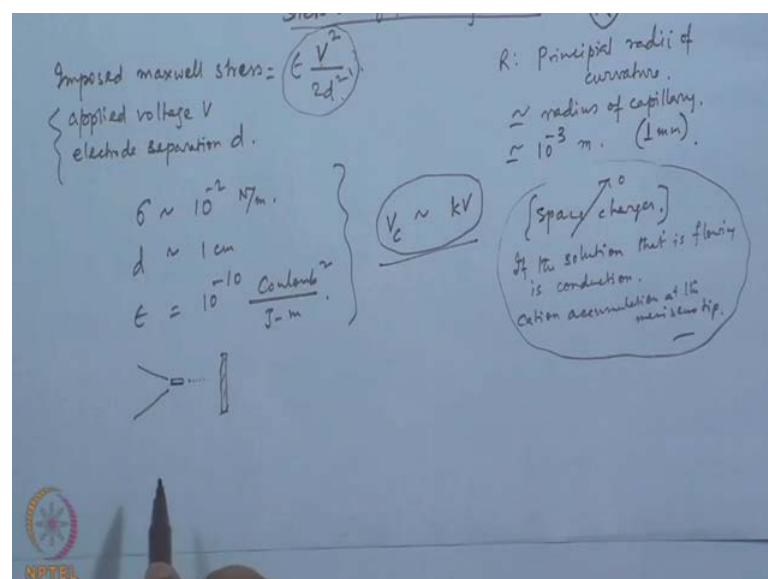 Imposed maxwell stress = ε V²/2d².
applied voltage V
electrode separation d.
σ ~ 10⁻² N/m.
d ~ 1 cm
ε = 10⁻¹⁰ Coulomb²/J-m.
V_c ~ kV
R: Principial radii of
curvature.
≃ radius of capillary.
≃ 10⁻³ m. (1 mm).
{space charges.} 0
If the solution that is flowing
is conduction.
cation accumulation at the
meniscus tip.
NPTEL